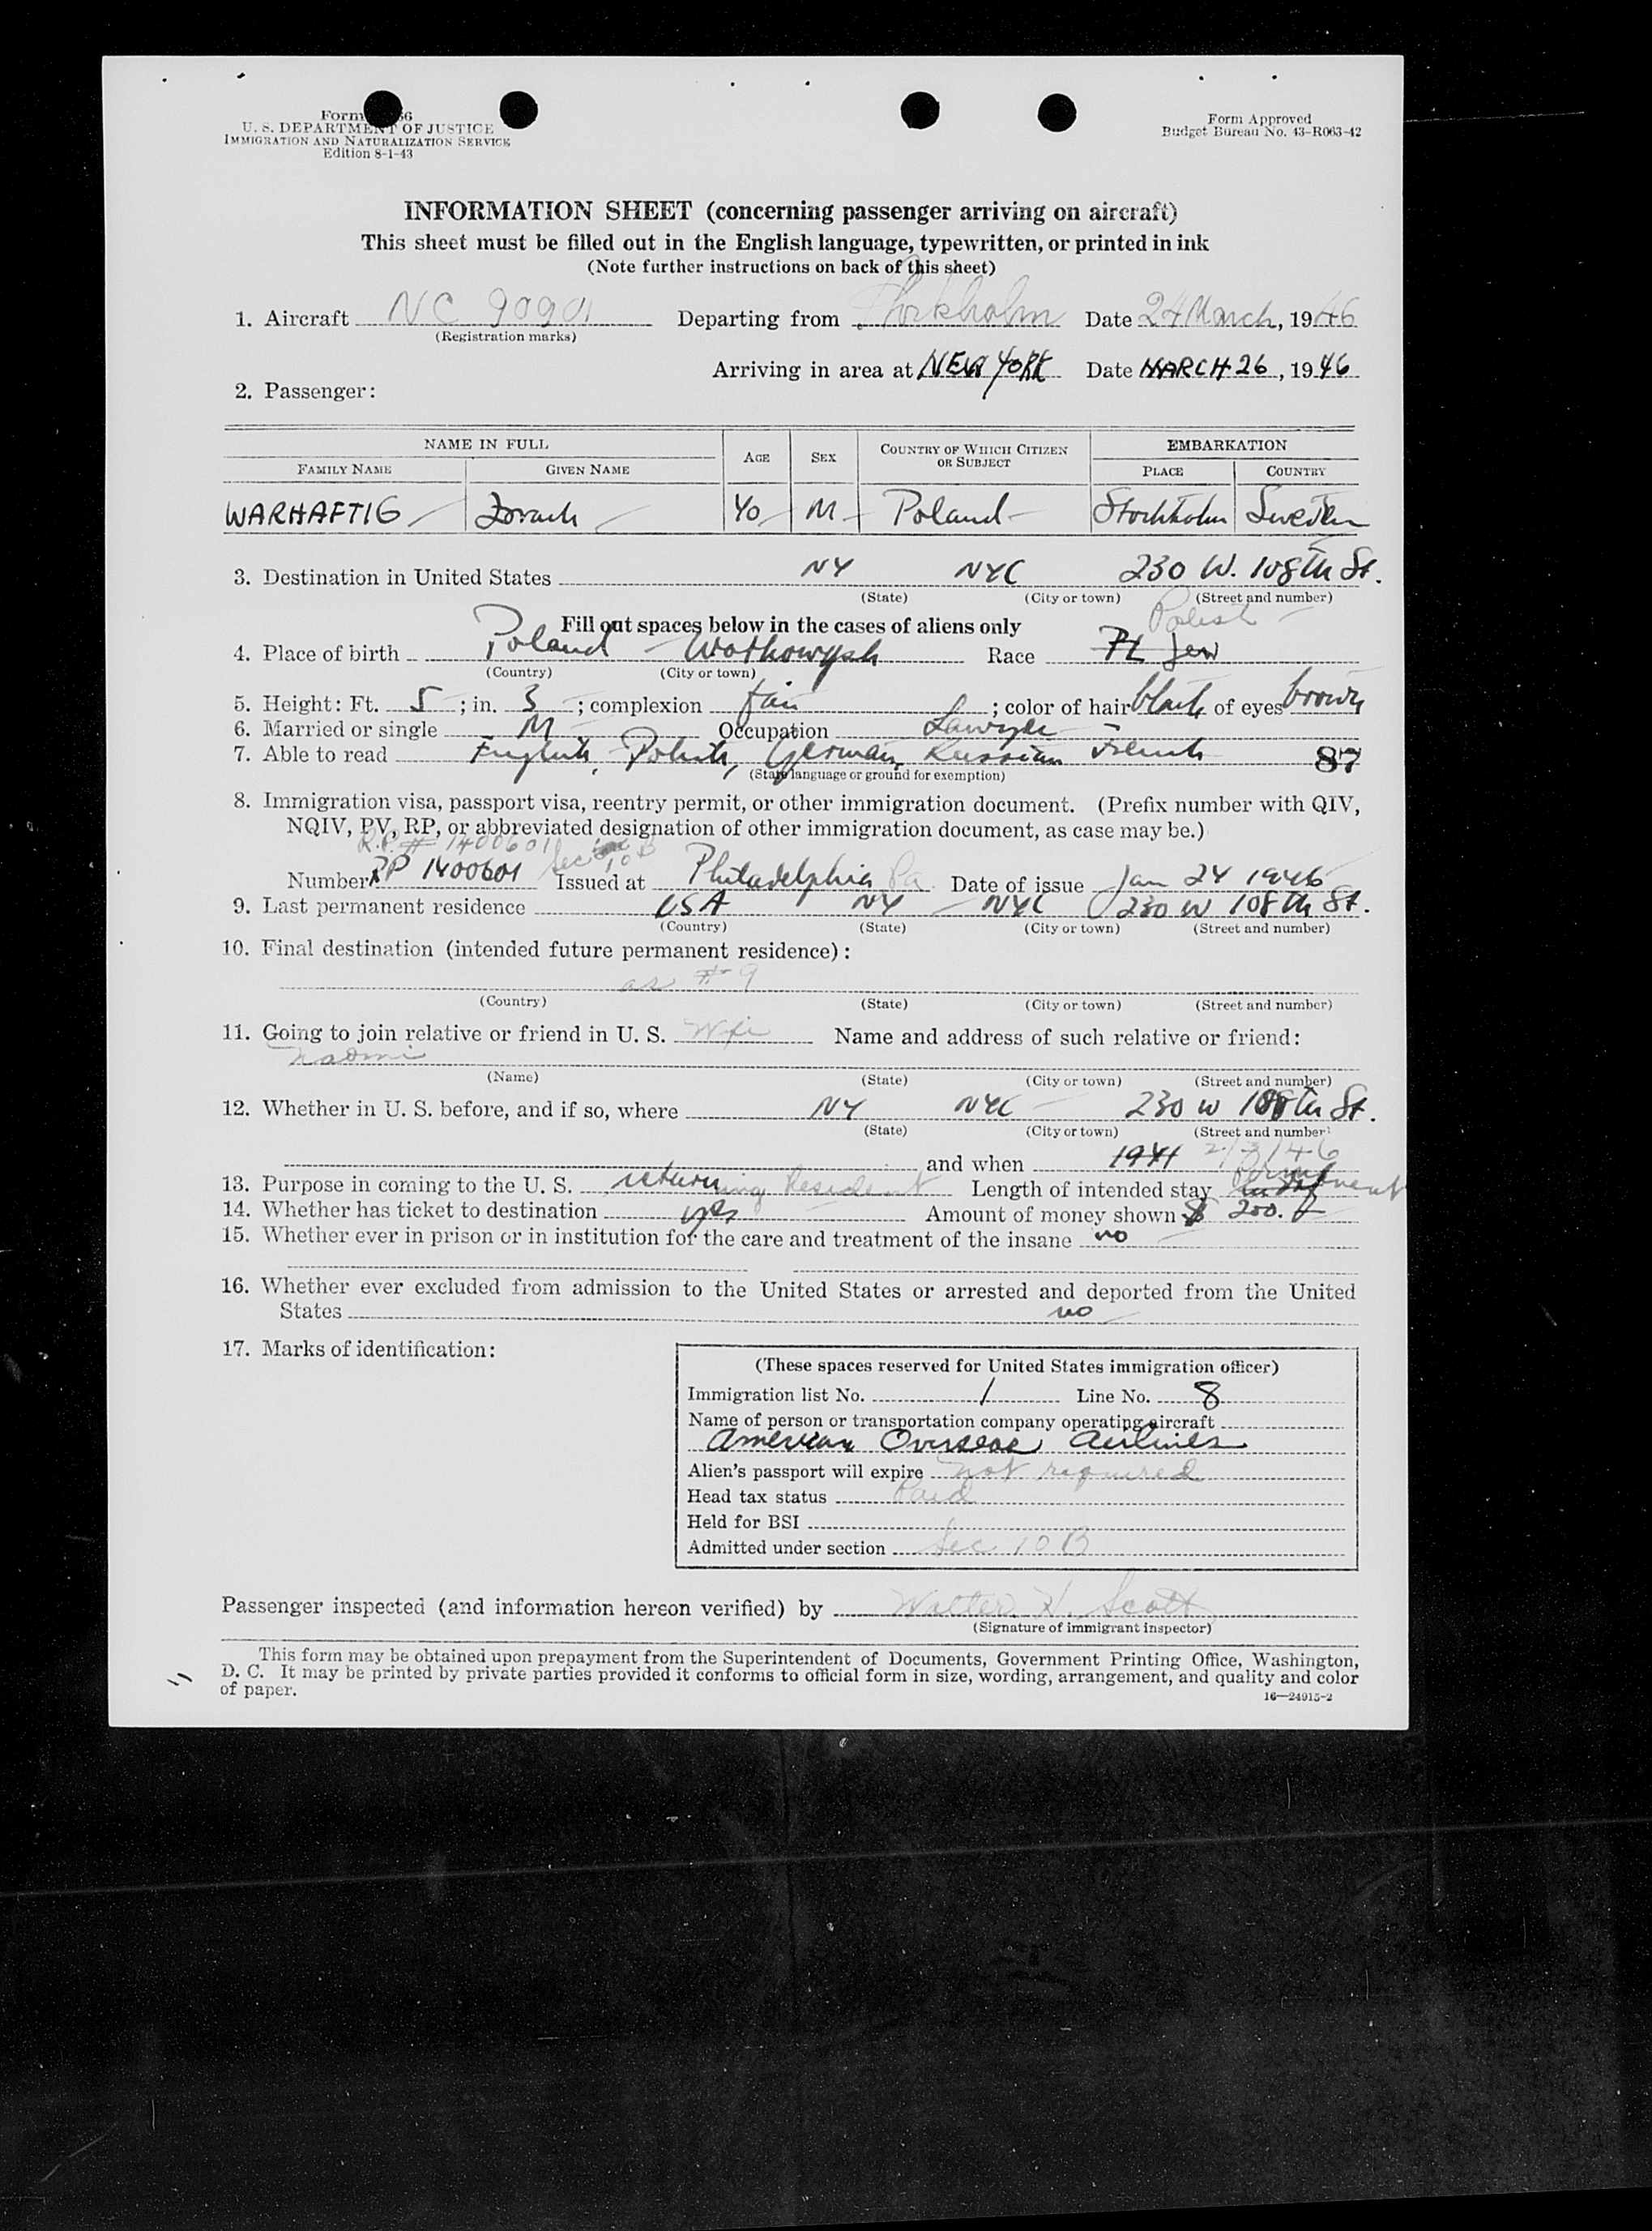 Form 66
U. S. DEPARTMENT OF JUSTICE
IMMIGRATION AND NATURALIZATION SERVICE
Edition 8-1-43
Form Approved
Budget Bureau No. 43-R063-42
INFORMATION SHEET (concerning passenger arriving on aircraft)
This sheet must be filled out in the English language, typewritten, or printed in ink
(Note further instructions on back of this sheet)
1. Aircraft NC 90901 Departing from Stockholm Date 24 March, 1946
(Registration marks)
Arriving in area at NEW YORK Date MARCH 26, 1946
2. Passenger:
NAME IN FULL AGE SEX COUNTRY OF WHICH CITIZEN OR SUBJECT EMBARKATION
FAMILY NAME GIVEN NAME PLACE COUNTRY
WARHAFTIG Zorach 40 M Poland Stockholm Sweden
3. Destination in United States NY NYC 230 W. 108th St.
(State) (City or town) (Street and number)
Polish
Fill out spaces below in the cases of aliens only
4. Place of birth Poland Wolkowysk Race PL Jew
(Country) (City or town)
5. Height: Ft. 5; in. 3; complexion fair; color of hair black of eyes brown
6. Married or single M Occupation Lawyer
7. Able to read English, Polish, German, Russian French 87
(State language or ground for exemption)
8. Immigration visa, passport visa, reentry permit, or other immigration document. (Prefix number with QIV,
NQIV, PV, RP, or abbreviated designation of other immigration document, as case may be.)
R.P. # 1400601 Sec 10 B
Number RP 1400601 Issued at Philadelphia Pa Date of issue Jan 24 1946
9. Last permanent residence USA NY NYC 230 W 108th St.
(Country) (State) (City or town) (Street and number)
10. Final destination (intended future permanent residence):
as # 9
(Country) (State) (City or town) (Street and number)
11. Going to join relative or friend in U. S. Wife Name and address of such relative or friend:
Naomi
(Name) (State) (City or town) (Street and number)
12. Whether in U. S. before, and if so, where NY NYC 230 W 108th St.
(State) (City or town) (Street and number)
and when 1941 2/3/46
13. Purpose in coming to the U. S. returning Resident Length of intended stay Permanent
14. Whether has ticket to destination yes Amount of money shown $ 200.
15. Whether ever in prison or in institution for the care and treatment of the insane no
16. Whether ever excluded from admission to the United States or arrested and deported from the United
States no
17. Marks of identification:
(These spaces reserved for United States immigration officer)
Immigration list No. 1 Line No. 8
Name of person or transportation company operating aircraft
American Overseas Airlines
Alien's passport will expire not required
Head tax status Paid
Held for BSI
Admitted under section Sec 10 B
Passenger inspected (and information hereon verified) by Walter H. Scott
(Signature of immigrant inspector)
This form may be obtained upon prepayment from the Superintendent of Documents, Government Printing Office, Washington,
D. C. It may be printed by private parties provided it conforms to official form in size, wording, arrangement, and quality and color
of paper.
16—24915-2